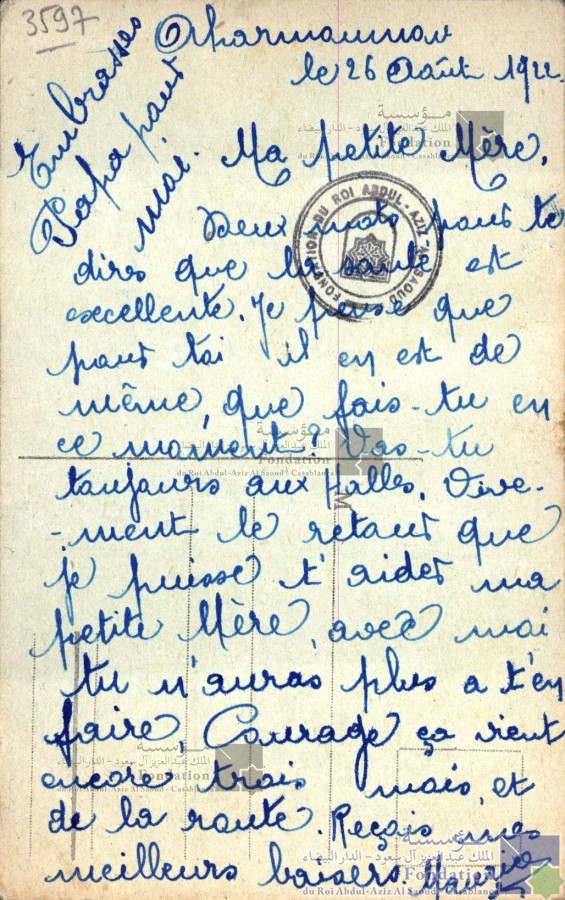 3597
le 26 Août 1922.
Embrasses
Papa pour
moi.
Ma petite Mère,
Deux mots pour te
dire que la santé est
excellente. Je pense que
pour toi il en est de
même, que fais-tu en
ce moment? Vas-tu
toujours aux halles, Vive-
-ment le retour que
je puisse t'aider ma
petite Mère, avec moi
tu n'auras plus a t'en
faire, Courage ça vient
encore trois mois et
de la route. Reçois mes
meilleurs baisers
FONDATION DU ROI ABDUL-AZIZ AL SAOUD
مؤسسة
الملك عبد العزيز آل سعود - الدار البيضاء
Fondation
du Roi Abdul-Aziz Al Saoud - Casablanca